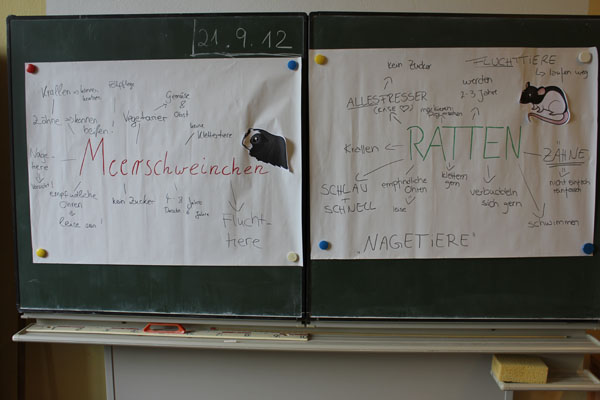 21.9.12
Krallen → können
kratzen
Fellpflege
Gemüse
&
Obst
Zähne → können
beißen
Vegetarier
keine
Klettertiere
Nage-
tiere
Meerschweinchen
empfindliche
Ohren
leise sein!
kein Zucker
Jahre
Flucht-
tiere
kein Zucker
FLUCHTTIERE
↳ laufen weg
ALLESFRESSER
(KÄSE ♡)
werden
2-3 Jahre
markieren
Krallen
RATTEN
ZÄHNE
SCHLAU
+
SCHNELL
empfindliche
Ohren
leise
klettern
gern
verbuddeln
sich gern
nicht einfach
schwimmen
"NAGETIERE"